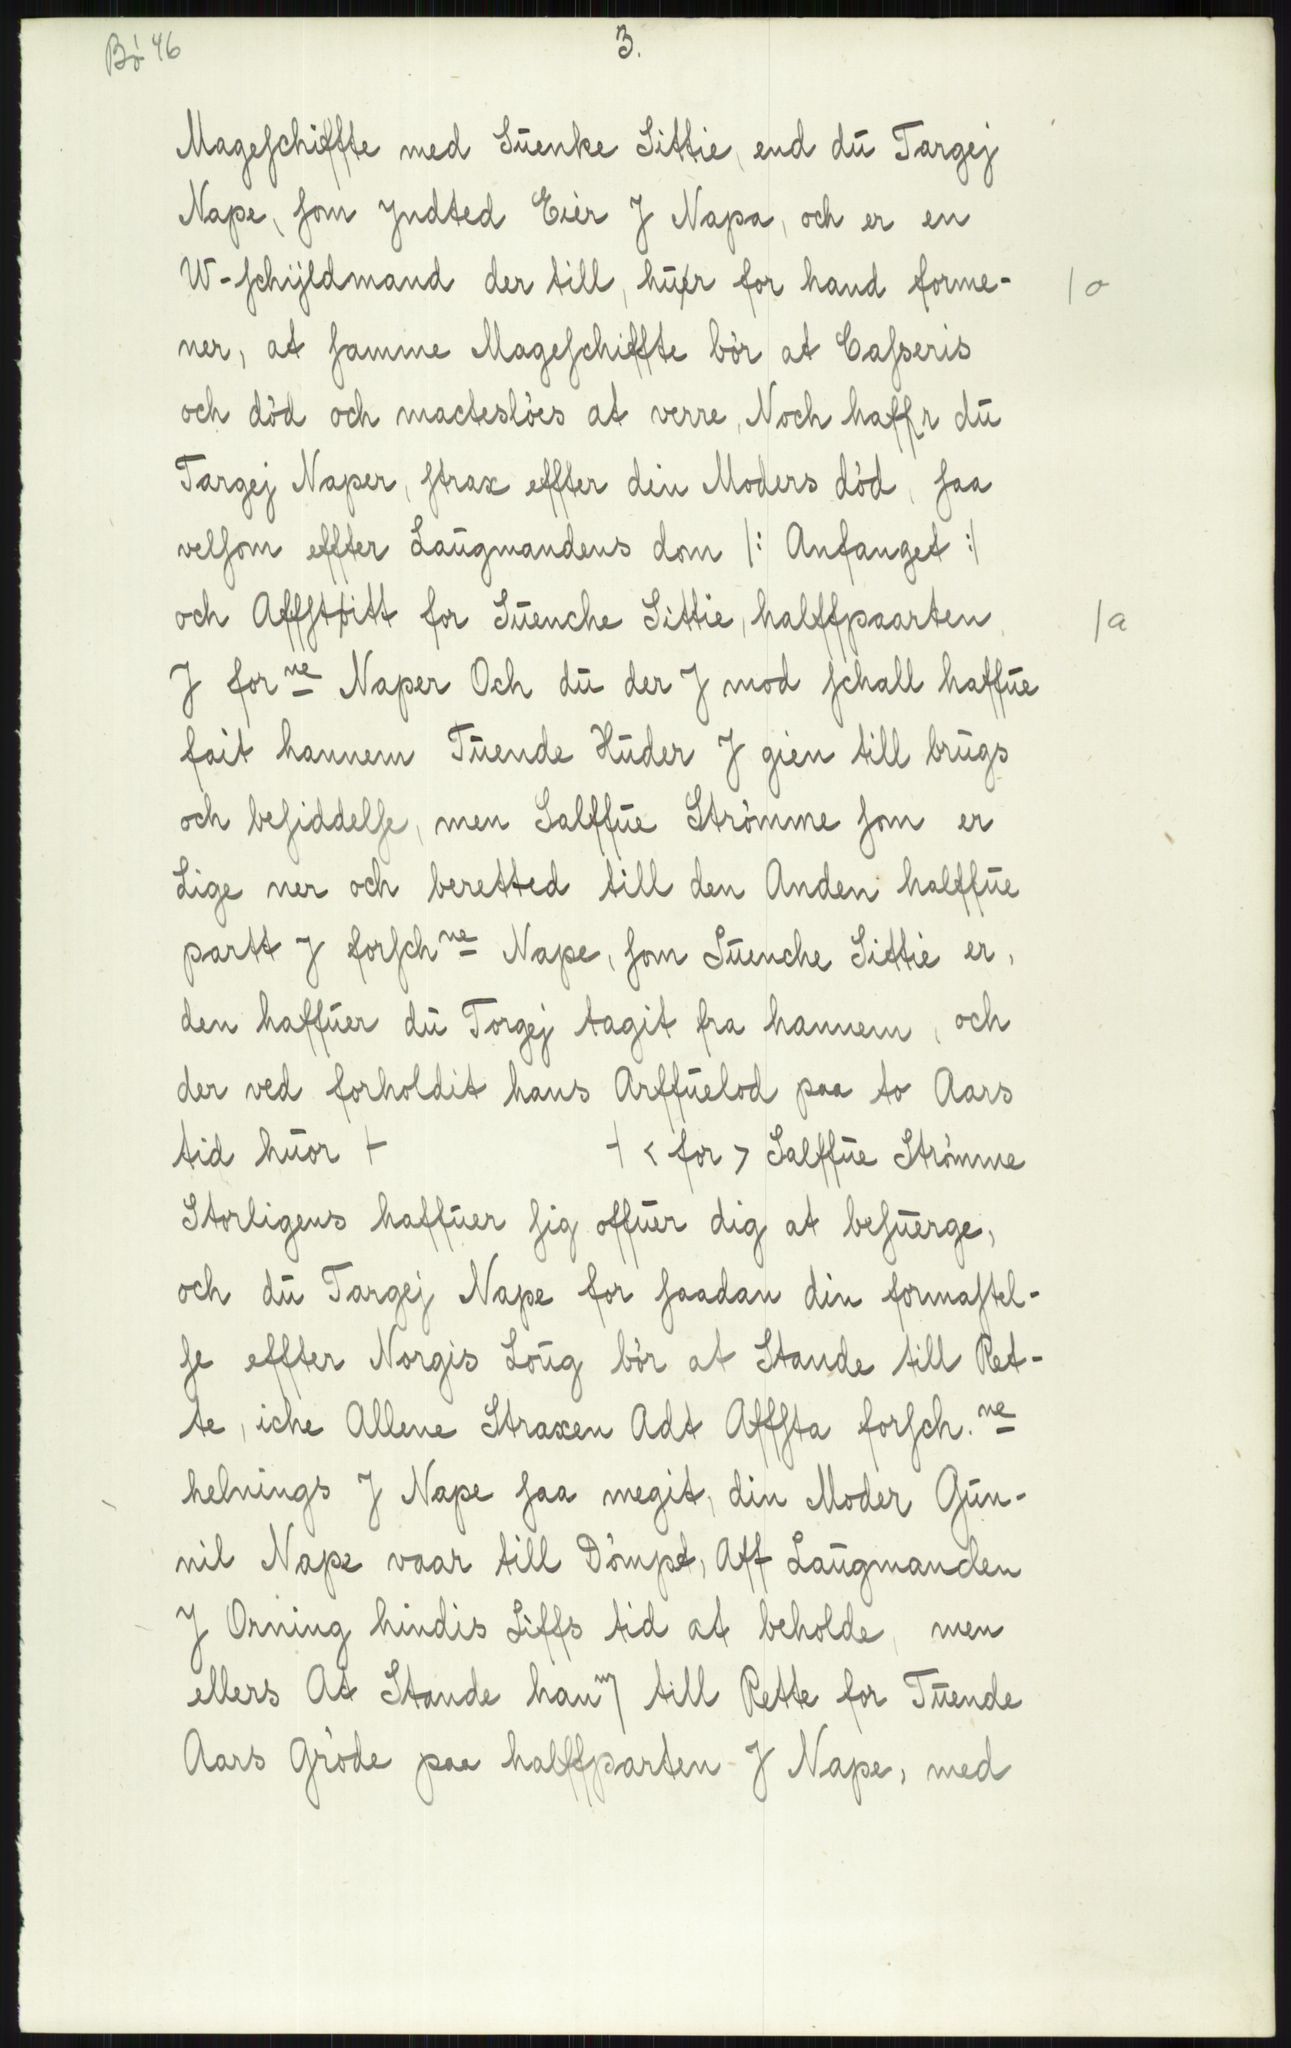 Bó 46
3.
Mageschiffte med Suenke Sittie, end dū Targej
Nape, som yndted Eier J Napa, och er en
W-schijldmand der till, huer for hand forme- |o
ner, at samme Mageschiffte bór at Casseris
och dód och macteslóes at verre, Noch haffr dū
Targej Naper, strax effter din Moders dód, saa
velsom effter Laūgmandens dom |: Anfanget :|
och Affstoitt for Sūenche Sittie, halffpaarten |a
J for ne Naper Och dū der J mod schall haffūe
fait hannem Tūende Hūder J gien till brūgs
och besiddelse, men Salffūe Strómme som er
Lige ner och beretted till den Anden halffūe
partt J forsch ne Nape, som Sūenche Sittie er,
den haffūer dū Torgej tagit fra hannem, och
der ved forholdit hans Arffūelod paa to Aars
tid hūor ⊢ ⊣ < for > Salffūe Strómme
Storligens haffūer sig offūer dig at besūerge,
och dū Targej Nape for saadan din formastel-
se effter Norgis Loūg bór at Stande till Ret-
te, iche Allene Straxen Adt Affsta forsch. ne
helnings J Nape saa megit, din Moder Gūn-
nil Nape vaar till Dómpt, Aff Laūgmanden
J Orning hindis Liffs tid at beholde, men
ellers At Stande han m till Rette for Tūende
Aars Gróde paa halffparten J Nape, med